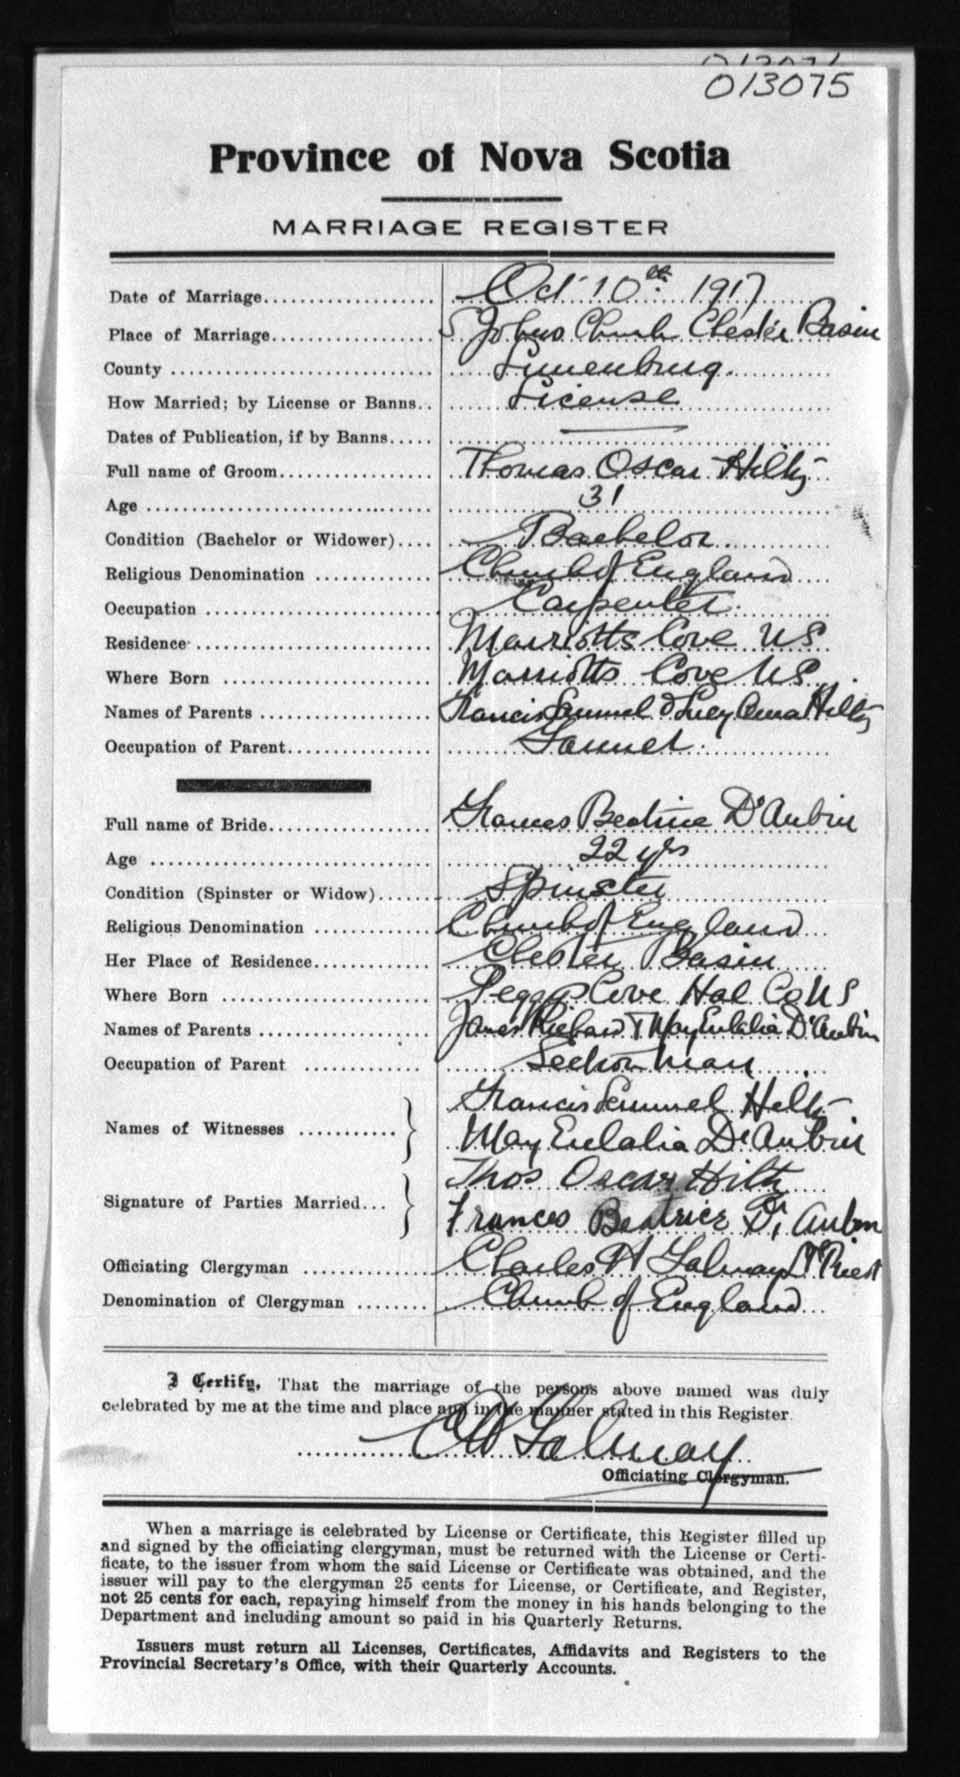 013075
Province of Nova Scotia
MARRIAGE REGISTER
Date of Marriage Oct 10th 1917
Place of Marriage S Johns Church Chester Basin
County Lunenburg.
How Married; by License or Banns License
Dates of Publication, if by Banns —
Full name of Groom Thomas Oscar Hiltz
Age 31
Condition (Bachelor or Widower) Bachelor
Religious Denomination Church of England
Occupation Carpenter
Residence Marriotts Cove NS
Where Born Marriotts Cove NS
Names of Parents Francis Lemuel & Lucy Anna Hiltz
Occupation of Parent Farmer
Full name of Bride Frances Beatrice D'Aubin
Age 22 yrs
Condition (Spinster or Widow) Spinster
Religious Denomination Church of England
Her Place of Residence Chester Basin
Where Born Peggs Cove Hal Co NS
Names of Parents James Richard & May Eulalia D'Aubin
Occupation of Parent Section man
Francis Lemuel Hiltz
Names of Witnesses
May Eulalia D'Aubin
Thos Oscar Hiltz
Signature of Parties Married
Frances Beatrice D'Aubin
Officiating Clergyman Charles W Priest
Denomination of Clergyman Church of England
I Certify, That the marriage of the persons above named was duly
celebrated by me at the time and place and in the manner stated in this Register.
Officiating Clergyman.
When a marriage is celebrated by License or Certificate, this Register filled up
and signed by the officiating clergyman, must be returned with the License or Certi-
ficate, to the issuer from whom the said License or Certificate was obtained, and the
issuer will pay to the clergyman 25 cents for License, or Certificate, and Register,
not 25 cents for each, repaying himself from the money in his hands belonging to the
Department and including amount so paid in his Quarterly Returns.
Issuers must return all Licenses, Certificates, Affidavits and Registers to the
Provincial Secretary's Office, with their Quarterly Accounts.